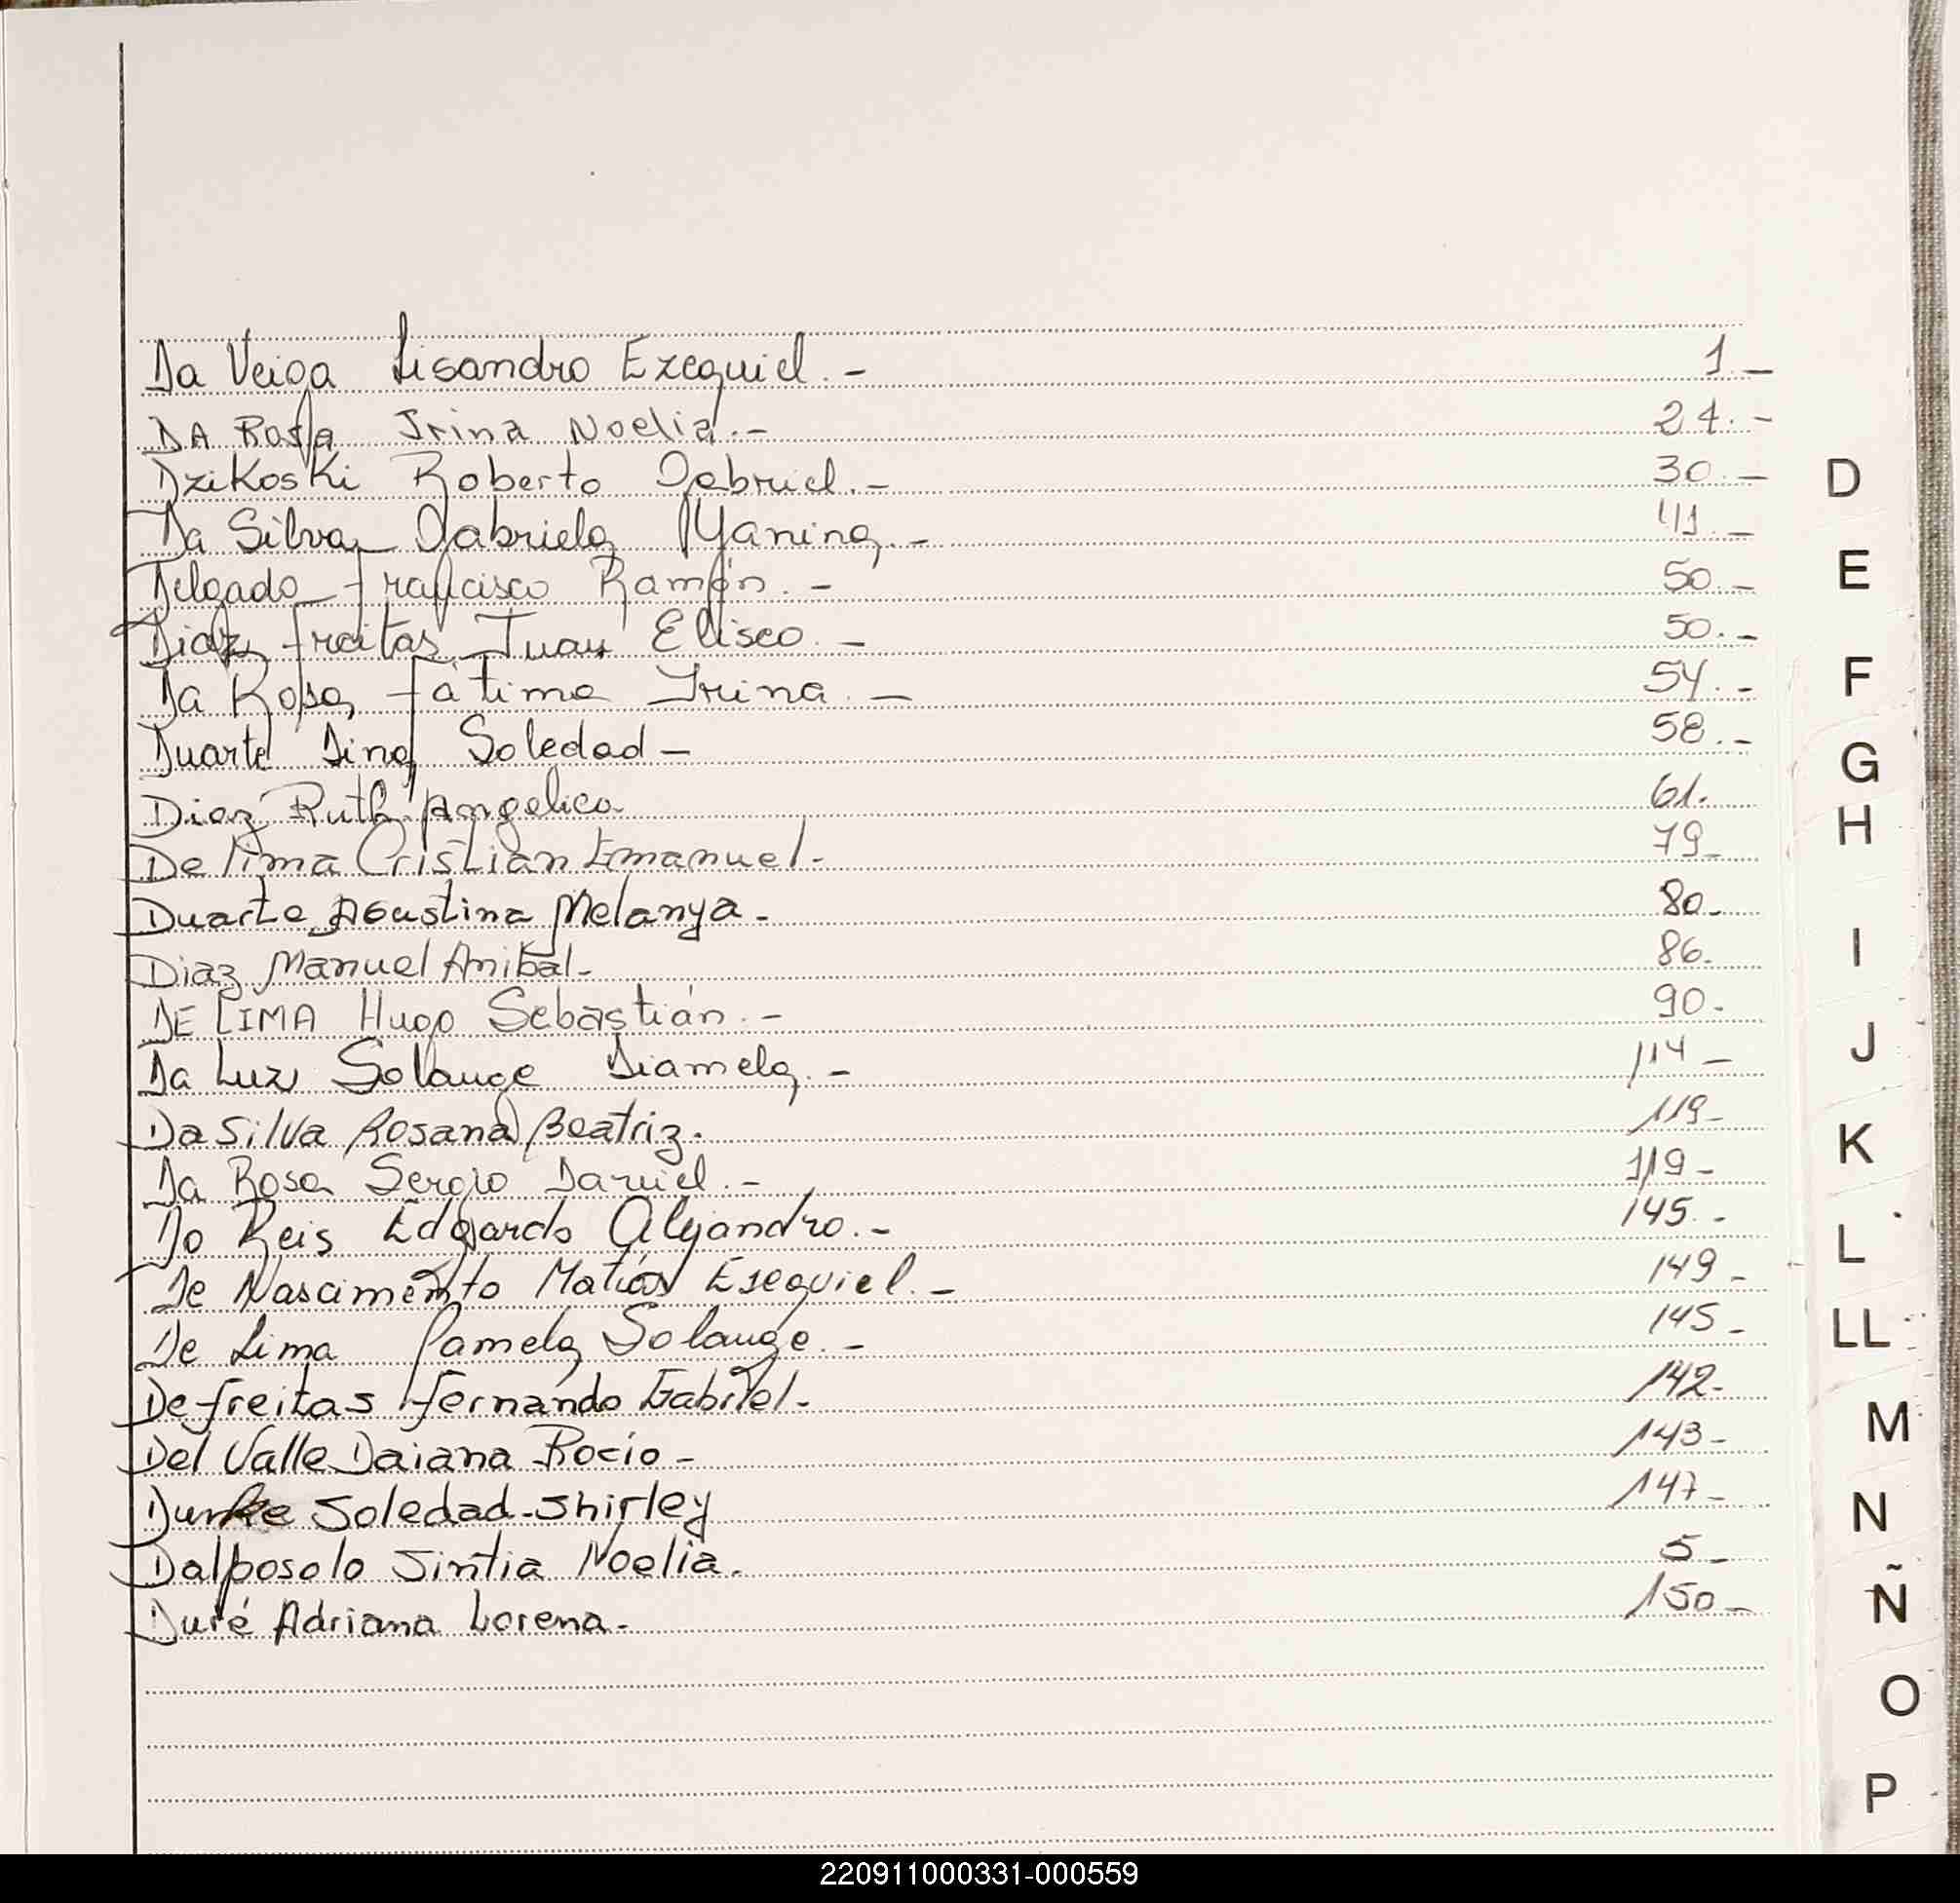 Da Veiga Lisandro Ezequiel.- 1.-
DA Rosa Irina Noelia.- 24.-
Dzikoski Roberto Gabriel.- 30.-
Da Silva Gabriela Yanina.- 41.-
Delgado Francisco Ramón.- 50.-
Diaz Freitas Juan Eliseo.- 50.-
Da Rosa Fátima Irina.- 54.-
Duarte Dina Soledad- 58.-
Diaz Ruth Angelica 61.
De lima Cristian Emanuel- 79-
Duarte Agustina Melanya- 80-
Diaz Manuel Anibal- 86-
DE LIMA Hugo Sebastián.- 90-
Da Luz Solange Diamela.- 114-
Da Silva Rosana Beatriz. 119-
Da Rosa Sergio Daniel.- 119-
Do Reis Edgardo Alejandro.- 145.-
De Nascimento Matías Esequiel.- 149-
De Lima Pamela Solange.- 145-
De freitas fernando Gabriel- 142-
Del Valle Daiana Rocío- 143-
Soledad-Shirley 147-
Dalposolo Sintia Noelia. 5-
Duré Adriana Lorena- 150-
D
E
F
G
H
I
J
K
L
LL
M
N
Ñ
O
P
220911000331-000559